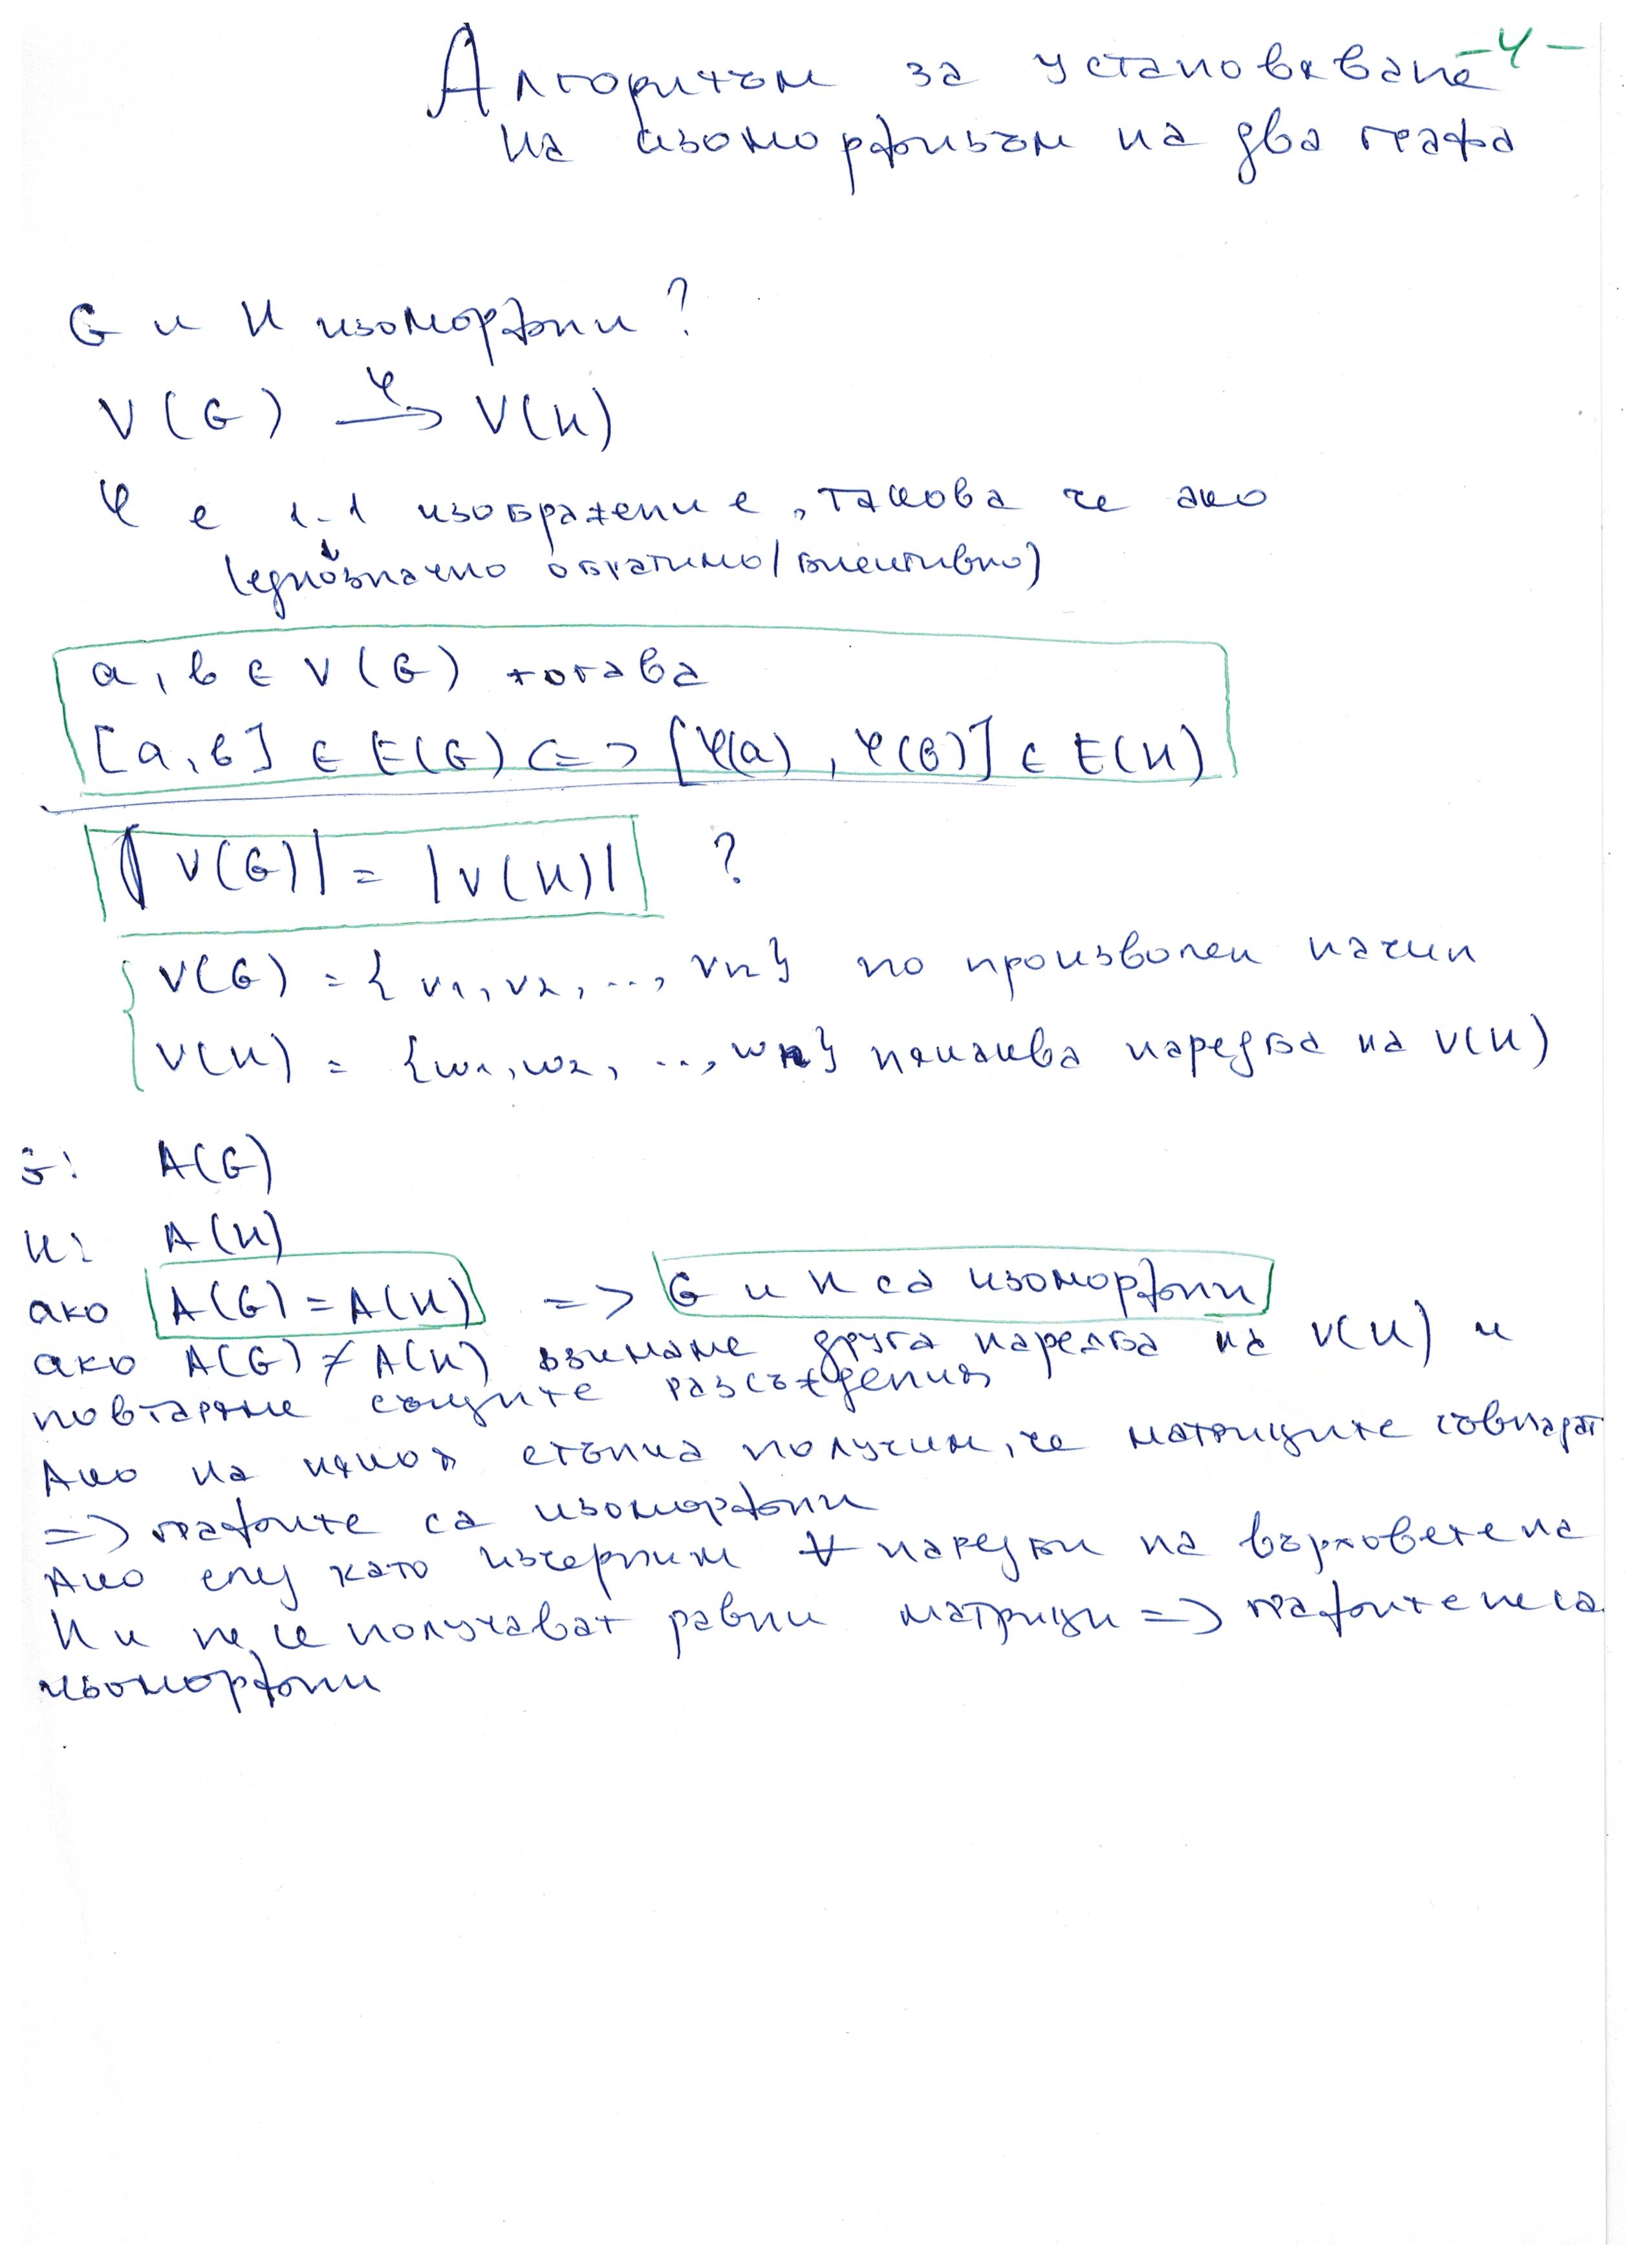 -4-
Алгоритъм за установяване
на изоморфизъм на два графа
G и H изоморфни?
V(G) →φ V(H)
φ е 1-1 изображение, такова че ако
(еднозначно обратимо/биективно)
a, b ∈ V(G) тогава
[a, b] ∈ E(G) <=> [φ(a), φ(b)] ∈ E(H)
|V(G)| = |V(H)| ?
V(G) = {v1, v2, ..., vn} по произволен начин
V(H) = {w1, w2, ..., wn} някаква наредба на V(H)
G: A(G)
H: A(H)
ако A(G) = A(H) => G и H са изоморфни
ако A(G) ≠ A(H) взимаме друга наредба на V(H) и
повтаряме същите разсъждения
Ако на някоя стъпка получим, че матриците съвпадат
=> графите са изоморфни
Ако след като изчерпим ∀ наредби на върховете на
H и не се получават равни матрици => графите не са
изоморфни